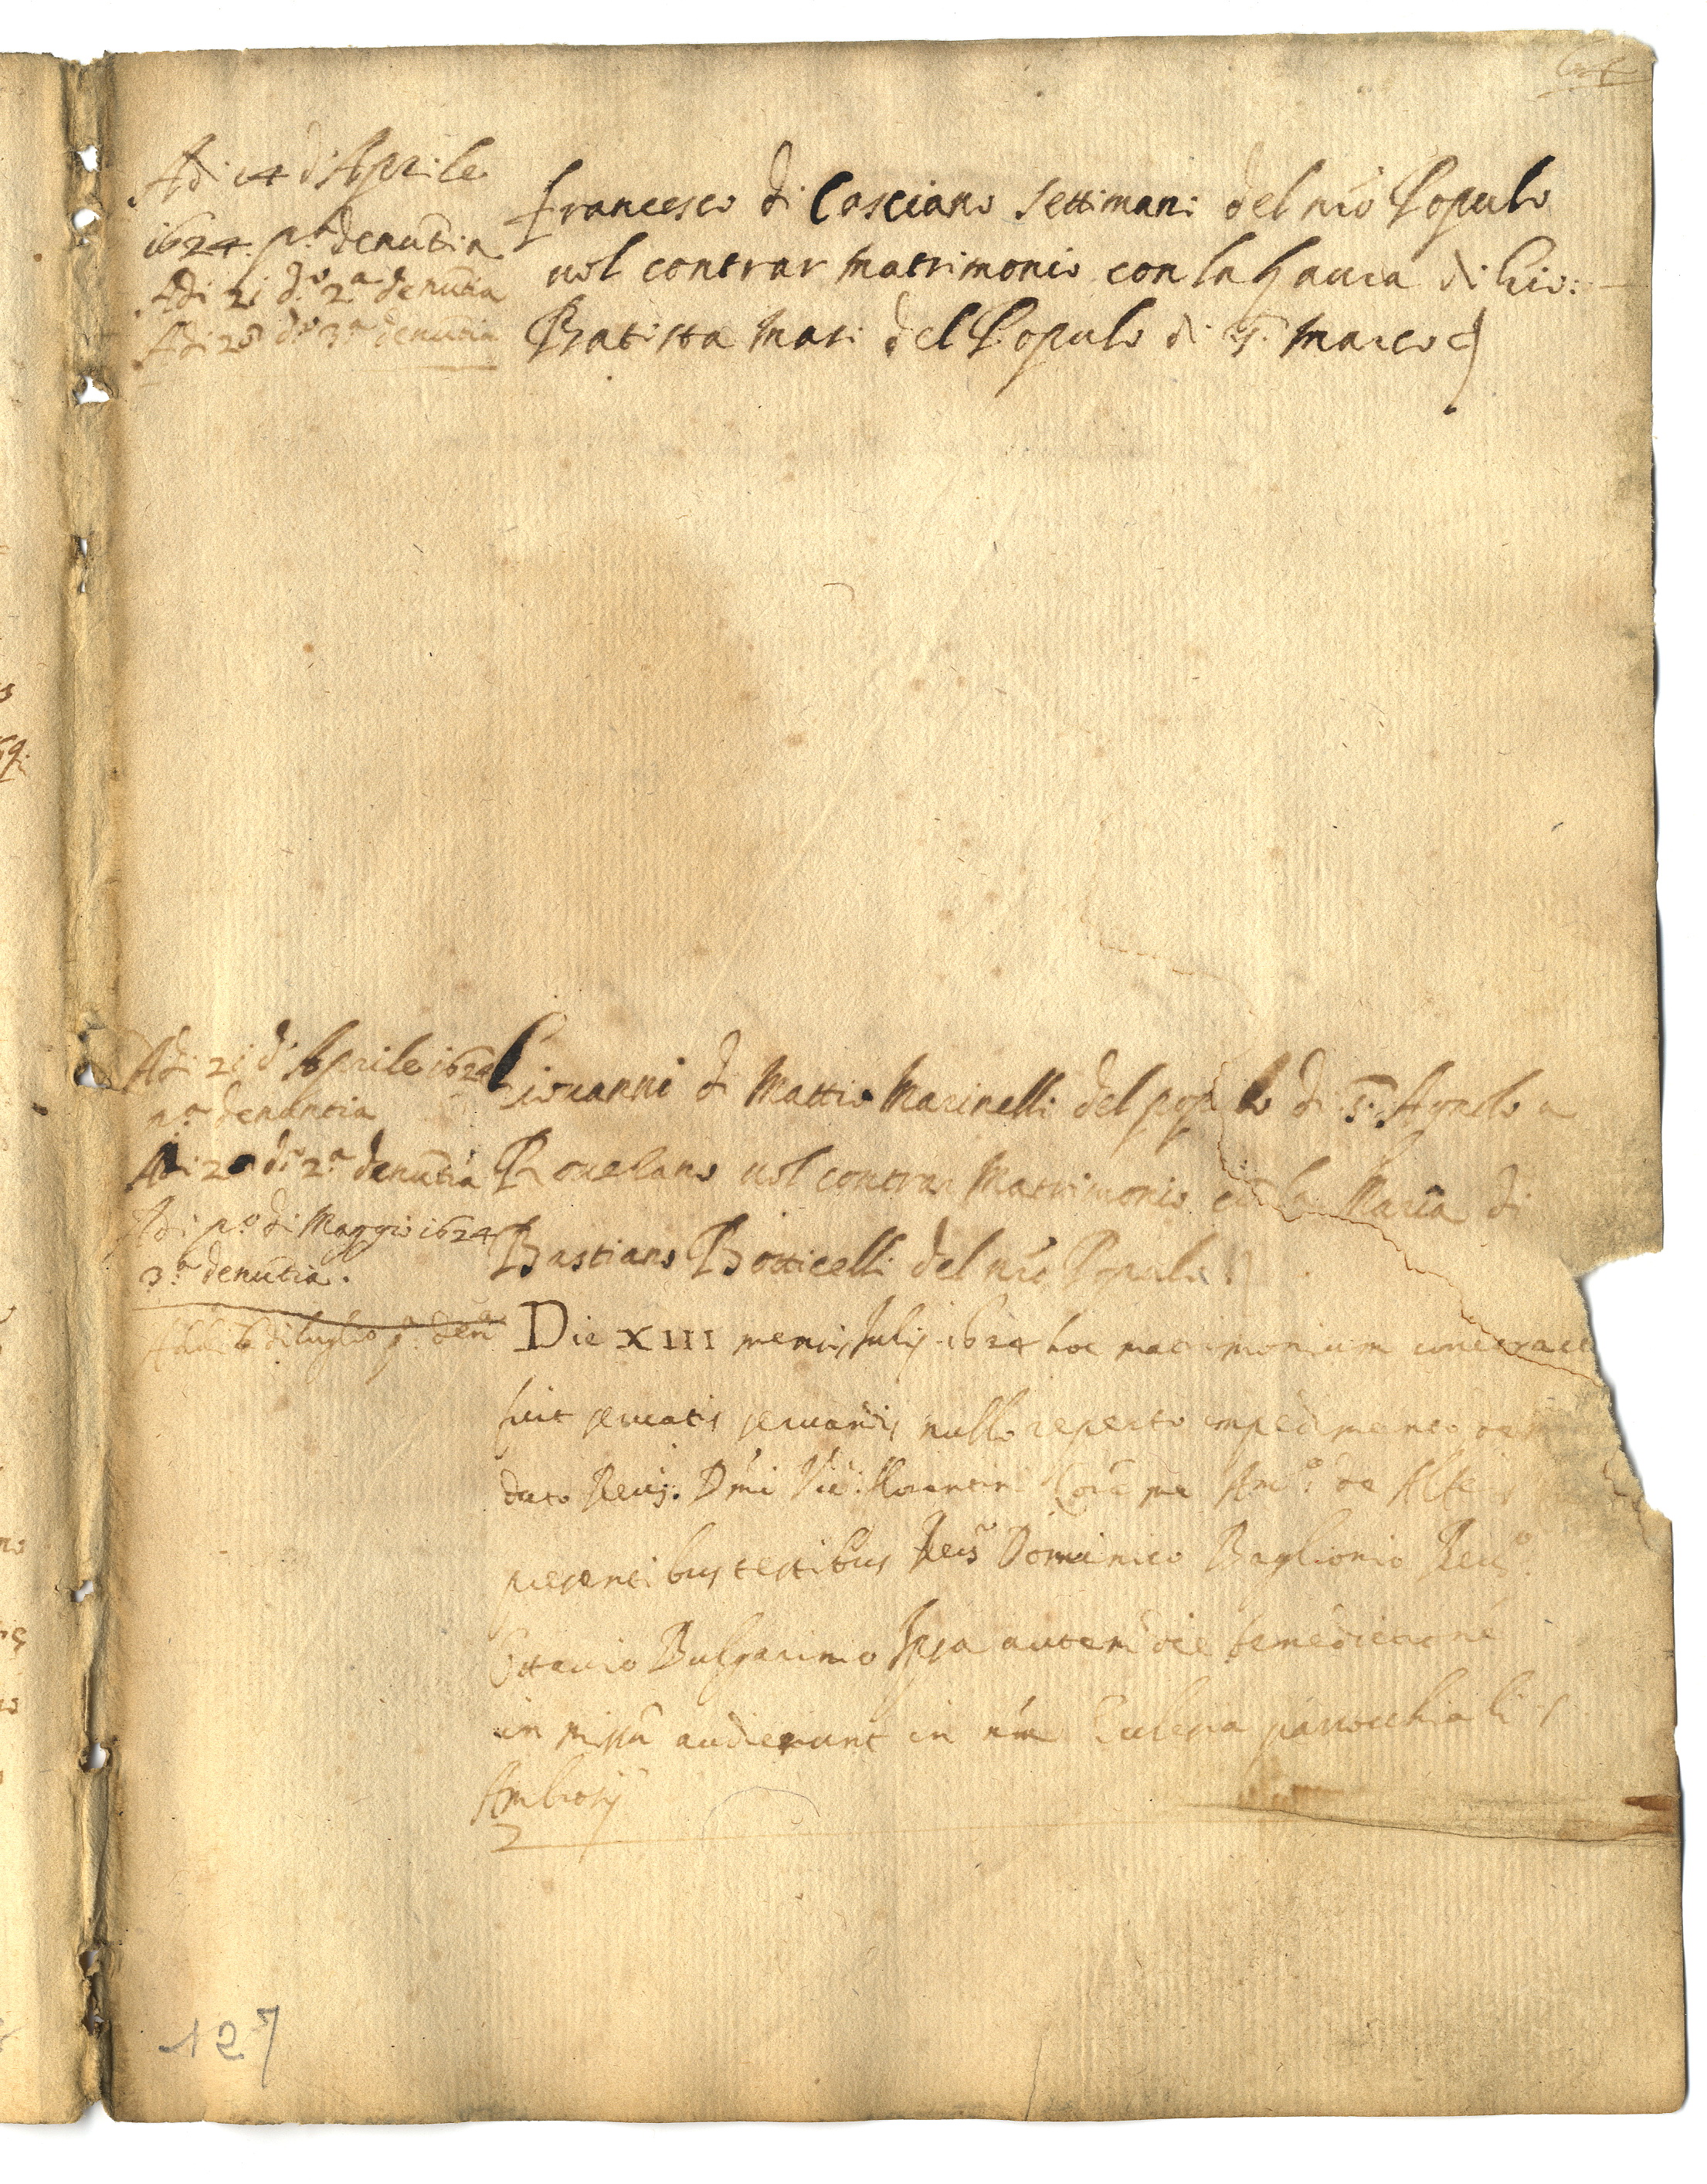 Adi 14 d'Aprile
1624 p.ª denũtia
Adi 21 d.º 2.ª denũtia
Adi 28 d.º 3.ª denũtia
Francesco di Casciano Settimani del nr̃o Populo
uol contrar matrimonio con la Laura di Gio:
Batista Mari del Populo di S. Marco
Adi 21 d'Aprile 1624
p.ª denuntia
Adi 28 d.º 2.ª denũtia
Adi p.º di Maggio 1624
3.ª denũtia.
Adi 6 di luglio p.ª den.ª
Giouanni di Mattio Marinelli del popolo di S. Agnolo a
Rouezano uol contrar Matrimonio cõ la Maria di
Bastiano Botticelli del nr̃o Populo
Die XIII mensis Julij 1624 hoc matrimonium contract
fuit seruatis seruandis nullo reperto impedimento
dato Reu.s Dm̃i Vic: florentini Corã me Am.º de
presentibus testibus Reu.º Dominico Baglionio Reu.º
Ottauio Bulgarinio Ipsa autem die benedictione
in missa audierunt in nr̃a Eclesia parrochiali S
Ambrosij
127